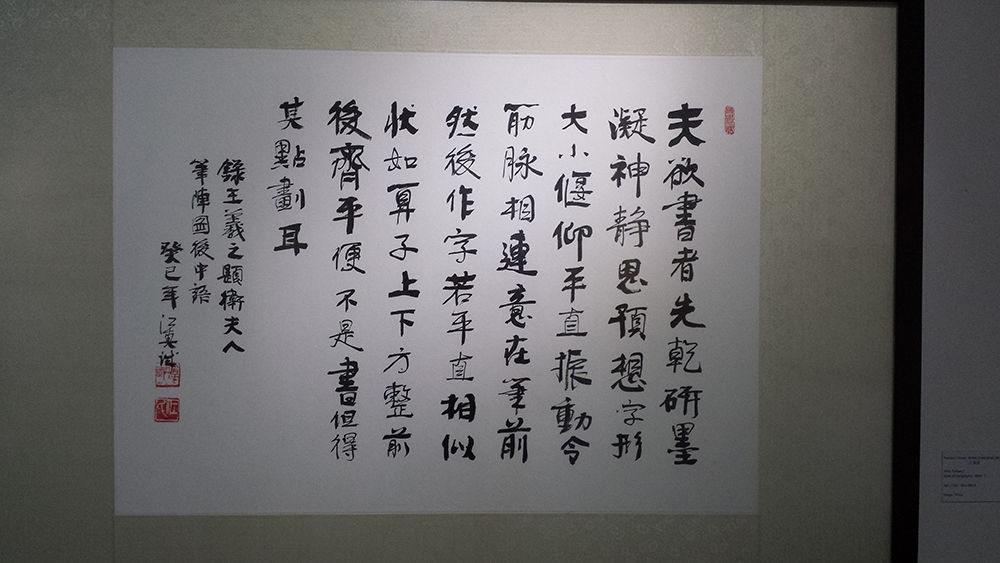 夫欲書者先乾研墨
凝神静思預想字形
大小偃仰平直振動令
筋脉相連意在筆前
然後作字若平直相似
狀如算子上下方整前
後齊平便不是書但得
其點劃耳
錄王羲之題衛夫人
筆陣圖後中語
癸巳年